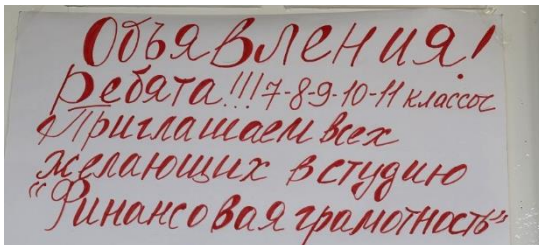 Объявления!
Ребята!!! 7-8-9-10-11 классы
Приглашаем всех
желающих в студию
"Финансовая грамотность"